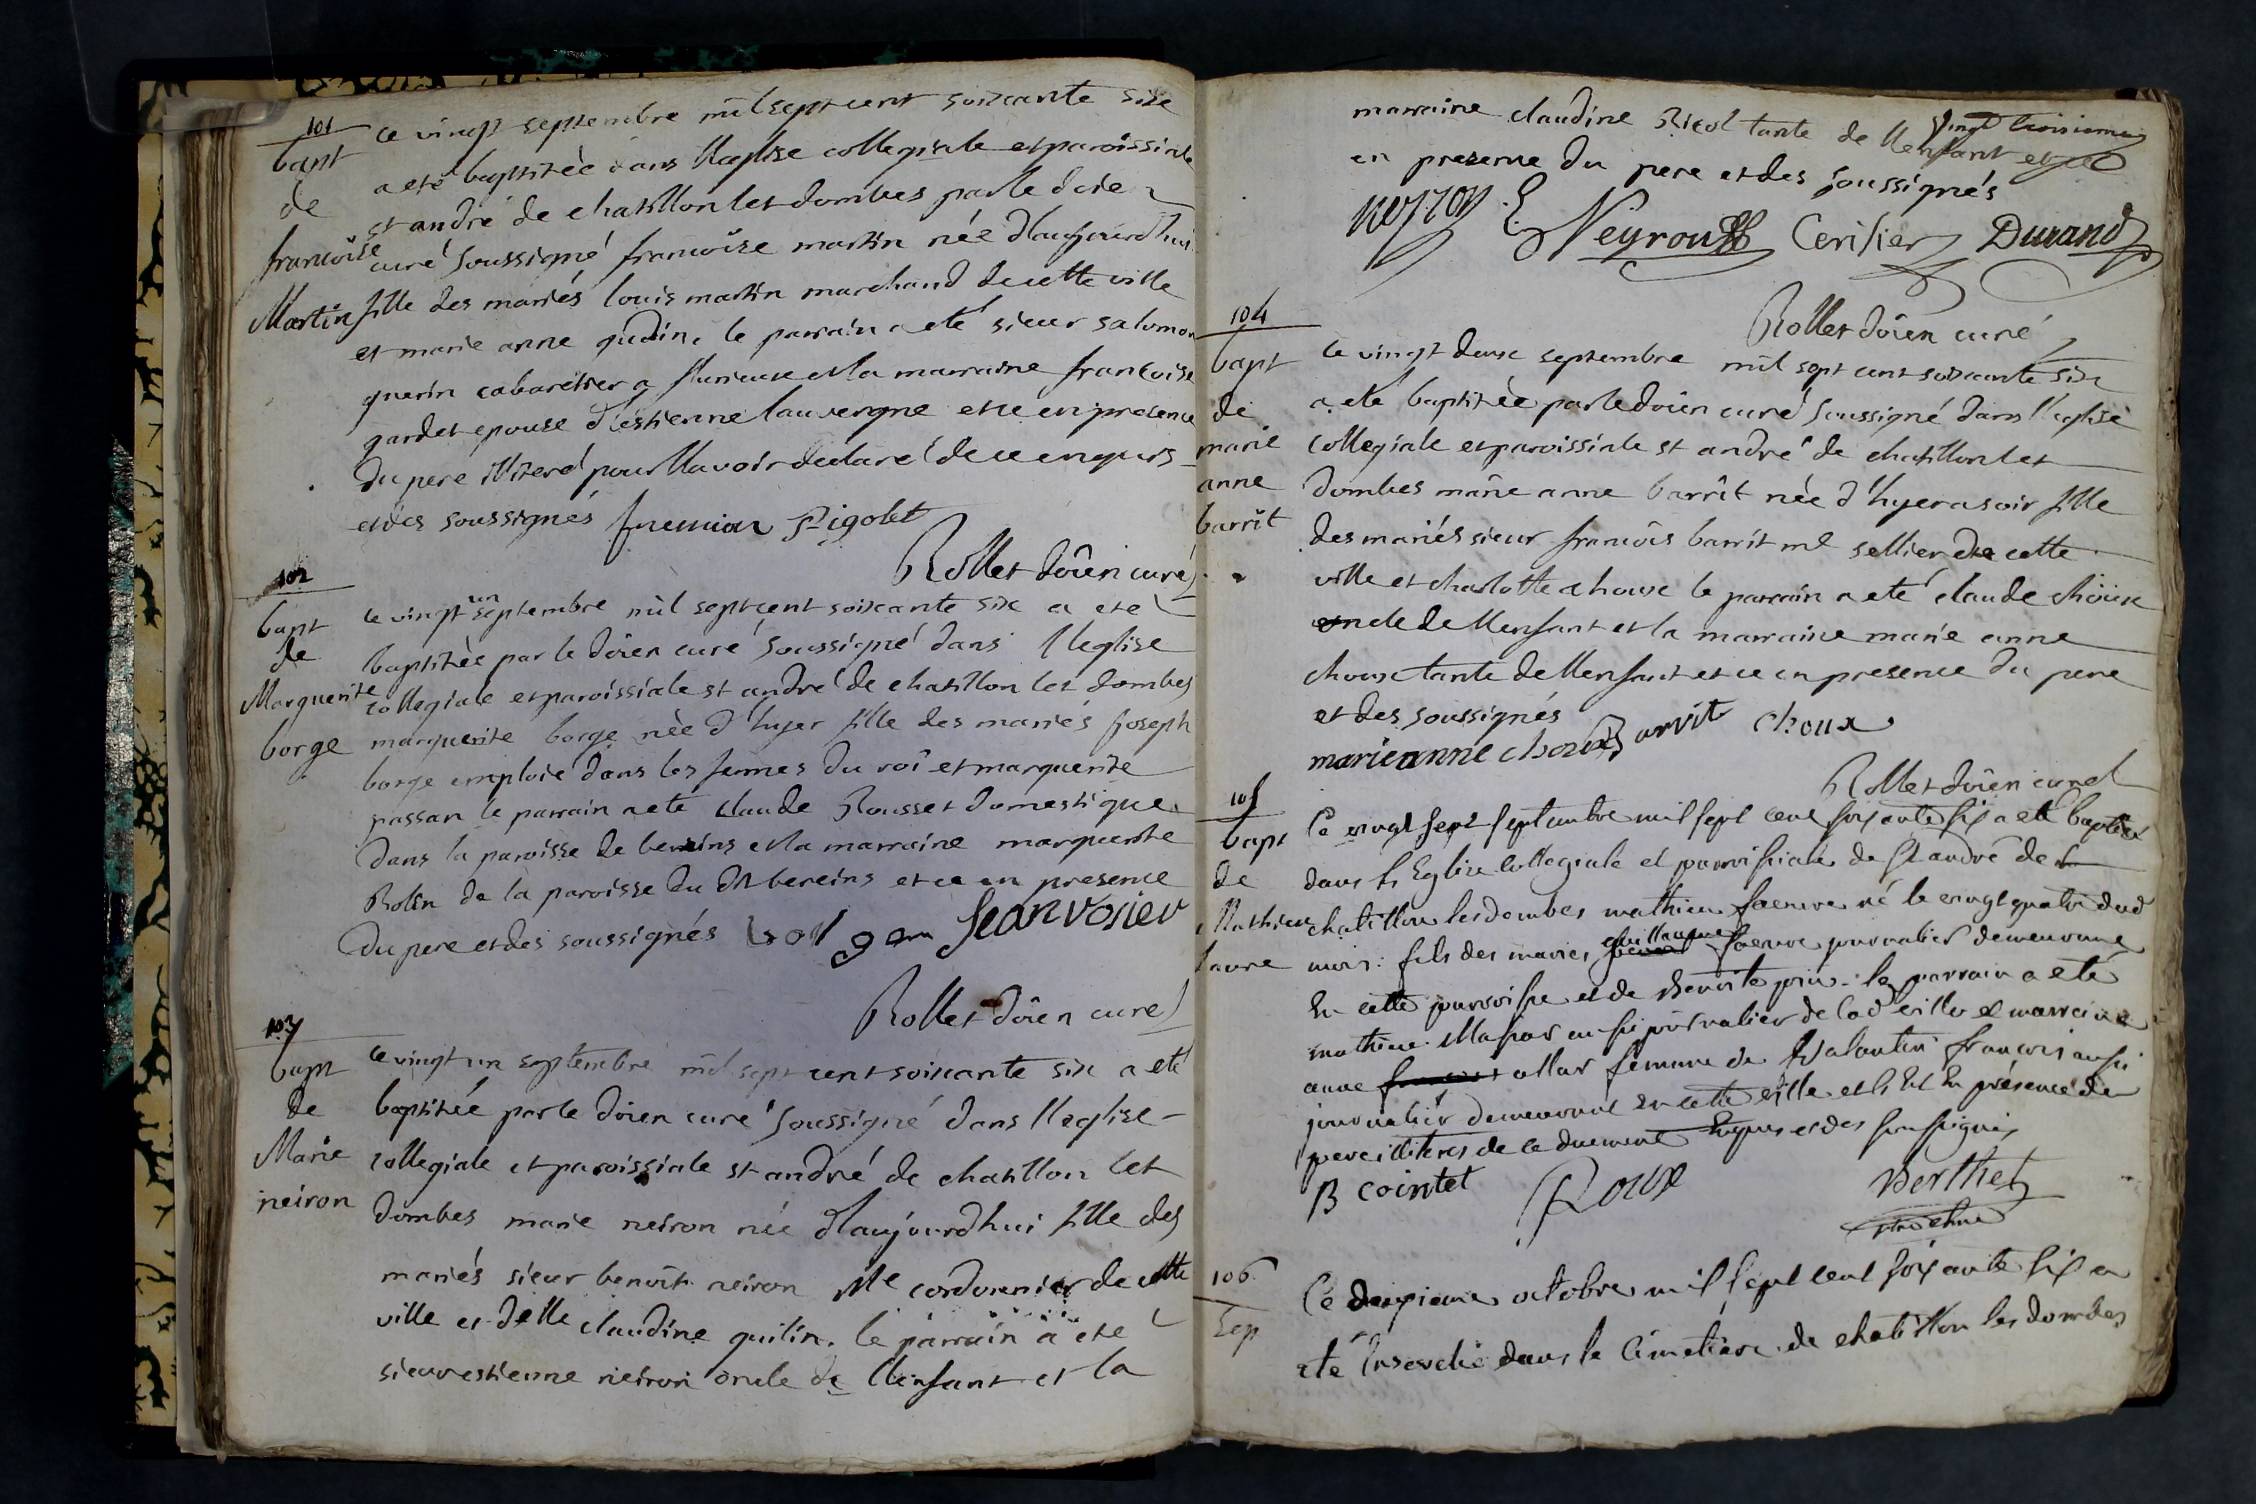 101
bapt
de
francoise
Martin
ce vingt septembre mil sept cent soixante six
a eté baptitéè dans l'leglise collegiale et paroissiale
st andré de chatillon les dombes par le doien
curé soussigné francoise martin née d'laujourd'hui
fille des mariés louis martin marchand de cette ville
et marie anne gudin. le parrain a eté sieur salomon
guerin cabaretier a flurieux et la marraine francoise
gardet epouse d'estienne lauvergne et ce en presence
du pere illiteré pour l'lavoir declaré de ce enquis
et des soussignés fremion Pigolet
Rollet doîen curé
102
bapt
de
Marguerite
borge
ce vingt un septembre mil sept cent soixante six a eté
baptitéè par le doien curé soussigné dans l'leglise
collegiale et paroissiale st andré de chatillon les dombes
marguerite borge née d'hyer fille des mariés joseph
borge emploié dans les fermes du roî et marguerite
passan le parrain a eté claude Rousset domestique
dans la paroisse de bereins et la marraine marguerite
Rolin de la paroisse du dit bereins et ce en presence
du pere et des soussignés Jean vosier
Rollet doîen curé
103
bapt
de
Marie
neiron
ce vingt un septembre mil sept cent soixante six a eté
baptitéé par le doien curé soussigné dans l'leglise
collegiale et paroissiale st andré de chatillon les
dombes marie neiron née d'laujourdhui fille des
mariés sieur benoît neiron Me cordonnier de cette
ville et delle claudine quilin. le parrain a eté
sieur estienne neiron oncle de l'lenfant et la
marraine claudine Ricol tante de l'lenfant et ce
vingt troisieme
en presence du pere et des soussignés
neyron E Neyrouss Cerisier Durand
Rollet doîen curé
104
bapt
de
marie
anne
barrît
ce vingt deux septembre mil sept cent soixante six
a eté baptitéè par le doien curé soussigné dans l'leglise
collegiale et paroissiale st andré de chatillon les
dombes marie anne barrît née d'hyer a soir fille
des mariés sieur francois barrit me sellier de cette
ville et charlotte choux le parrain a eté claude choux
oncle de l'lenfant et la marraine marie anne
choux tante de l'lenfant et ce en presence du pere
et des soussignés
marie anne choux Barvit choux
Rollet doîen curé
105
bapt
de
Mathieu
favre
Ce vingt sept septembre mil sept cent soixante six a eté baptisé
dans l'Eglise collegiale et parroissiale de St andré de
chatillon les dombes mathieu faevre né le vingt quatre dud
mois: fils des mariés guillaume faevre journalier demeurant
En cette parroisse et de Benoite poin. le parrain a eté
mathieu Massar aussi journalier de lad ville et marraine
anne allar femme de Valantin françois aussi
journalier demeurant en cette ville et ce En présence du
pere illiteres de ce duement Enquis et des soussignés
B cointet Roux Berthet
106
Sep
Ce deuxieme octobre mil sept cent soixante six a
eté Ensevelie dans le Cimetiere de chatillon les dombes